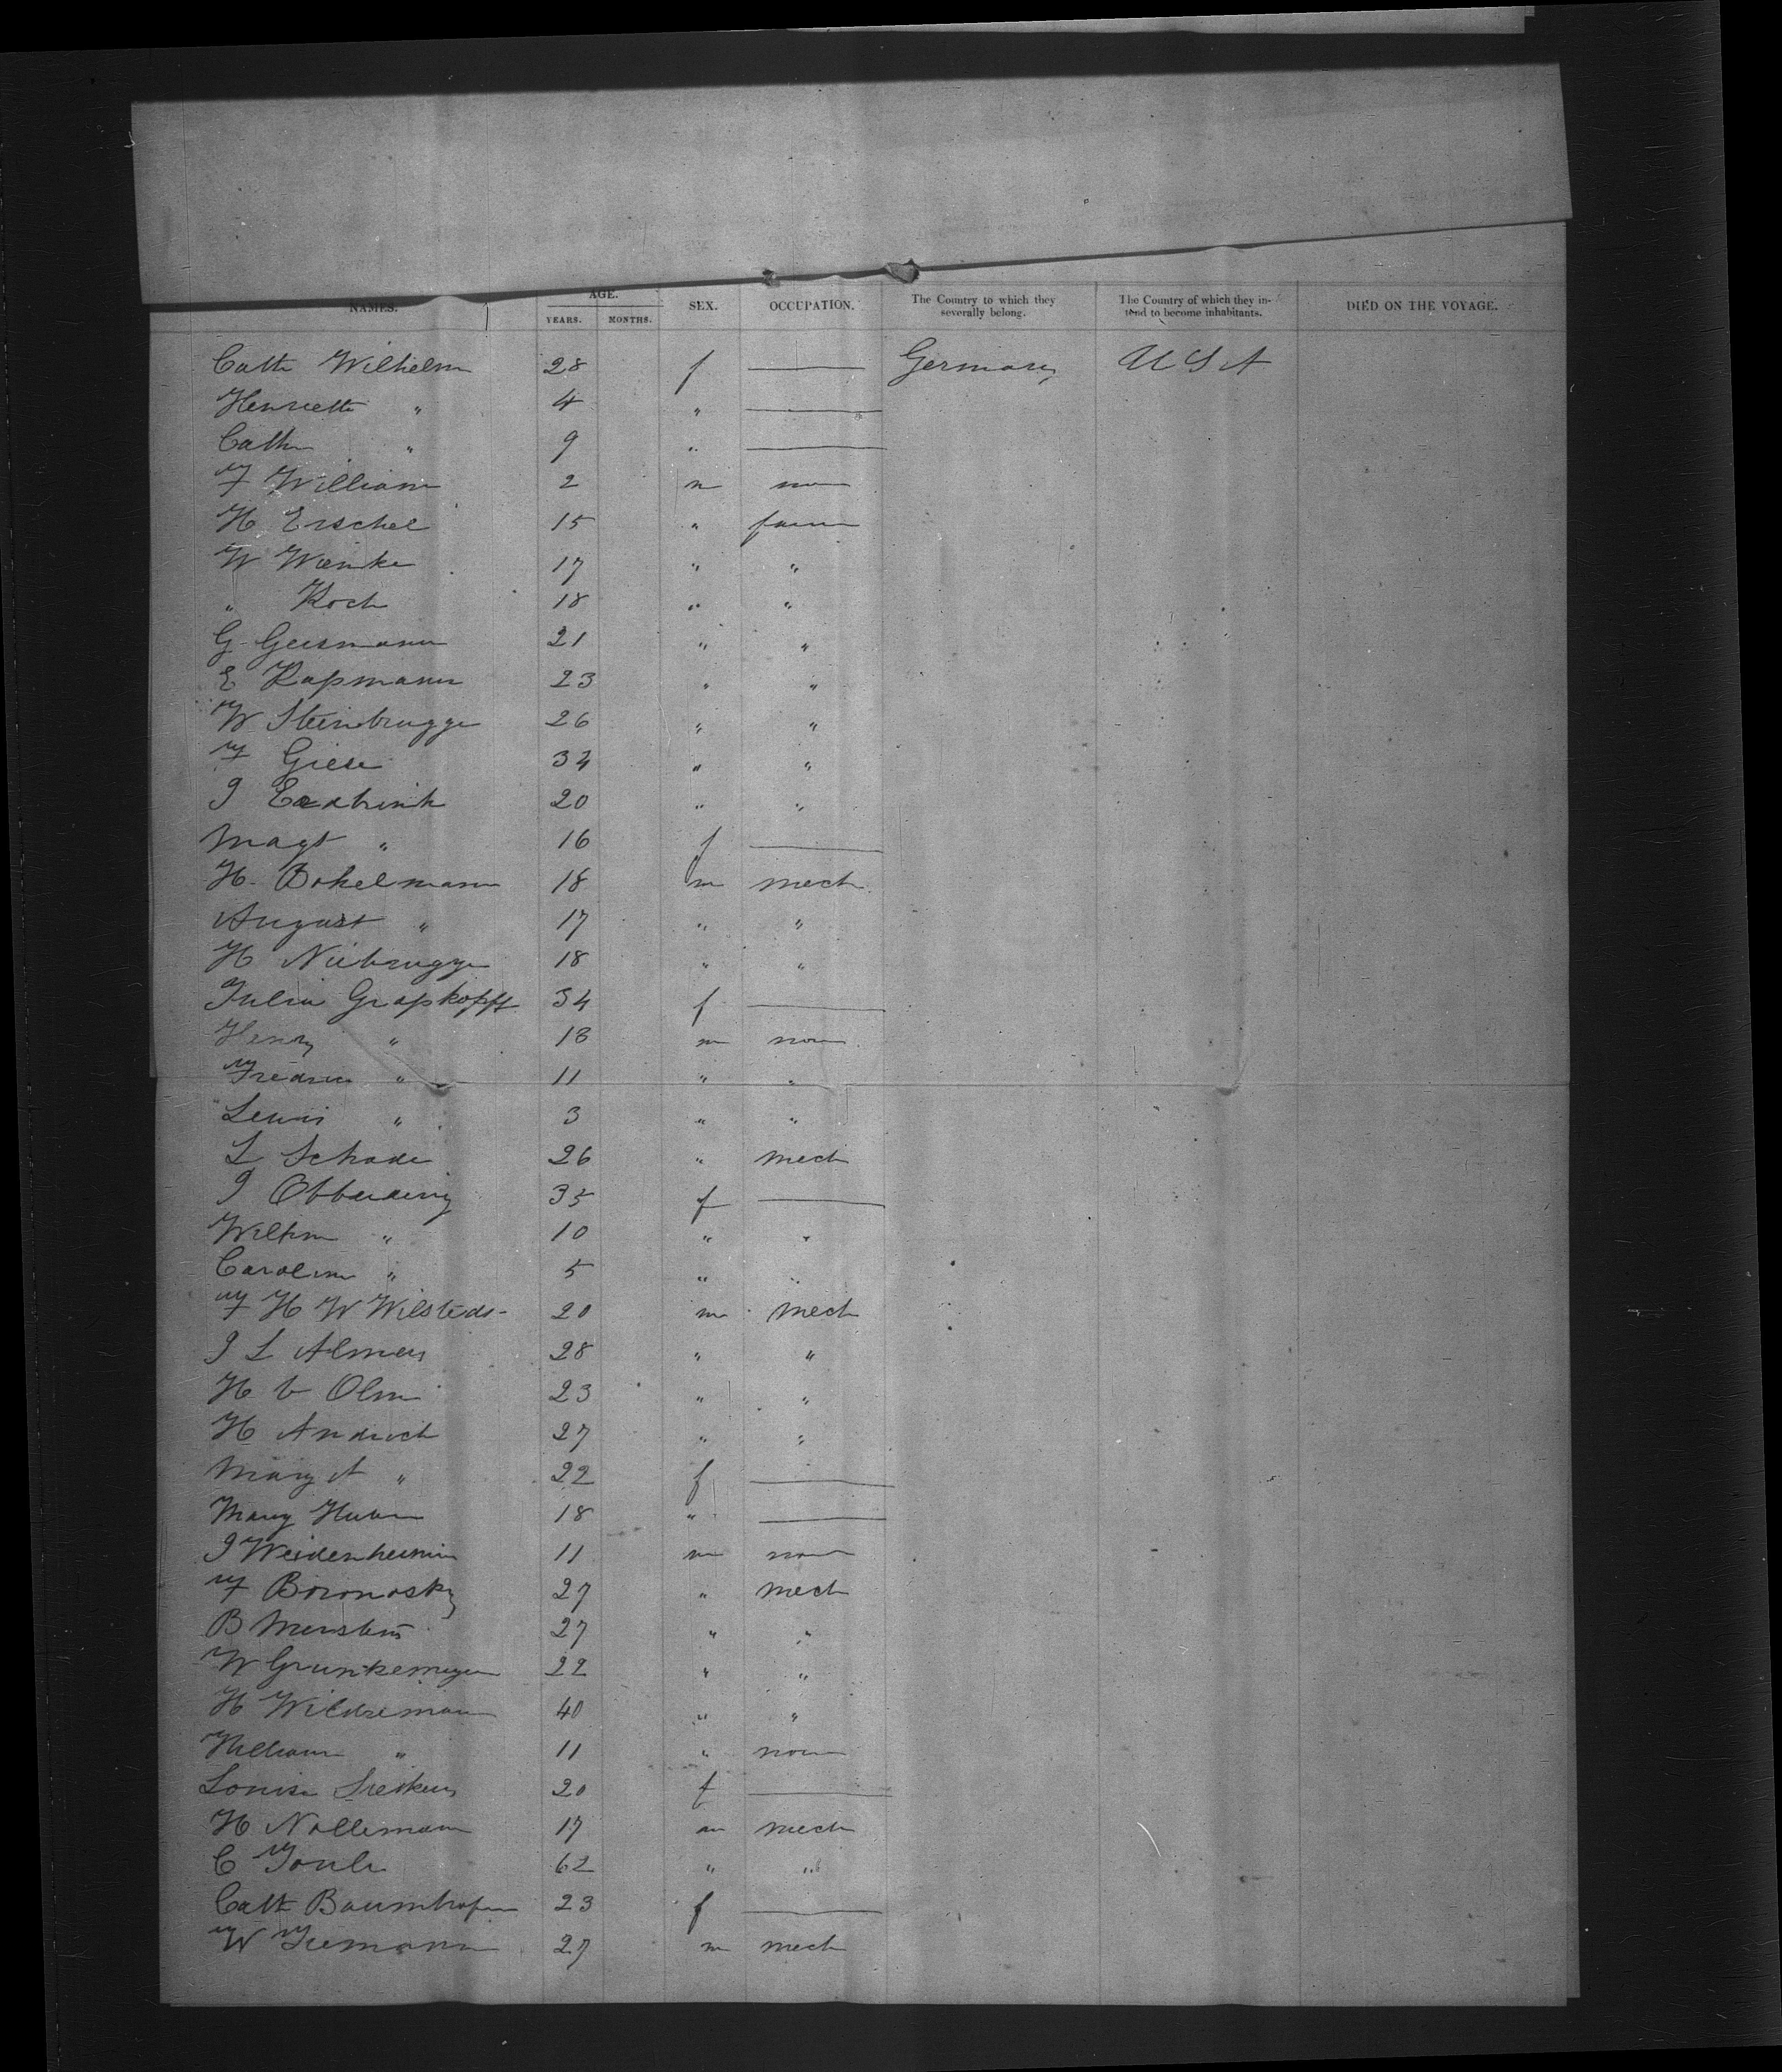 NAMES. AGE. YEARS. MONTHS. SEX. OCCUPATION. The Country to which they severally belong. The Country of which they intend to become inhabitants. DIED ON THE VOYAGE.
Cath Wilhelm 28 f — Germany U S A
Henriette " 4 " —
Cath " 9 " —
F William 2 m non
H Erschel 15 " farm
W Wienke 17 " "
" Koch 18 " "
G Geismann 21 " "
E Kapmann 23 " "
W Steinbrugge 26 " "
F Giese 34 " "
20 " "
Magt " 16 f —
H Bokelmann 18 m mech
August " 17 " "
H Niebrugge 18 " "
Julia Grapkopff 34 f —
Henry " 13 m non
Fredric " 11 " "
Lewis " 3 " "
L Schade 26 " mech
I 35 f —
Wilhm " 10 " "
Carolin " 5 " "
F H W Wilsteds 20 m mech
I L Almers 28 " "
H Olm 23 " "
H Andrich 27 " "
Mary A " 22 f —
Mary 18 " —
I Weidenheimin 11 m non
F Boronosky 27 " mech
B 27 " "
W Grunkemeyer 22 " "
H Wildreman 40 " "
William " 11 " non
Louise Sieskens 20 f —
H Nolleman 17 m mech
C 62 " "
Cath Baumhofer 23 f —
W Tiemann 27 m mech